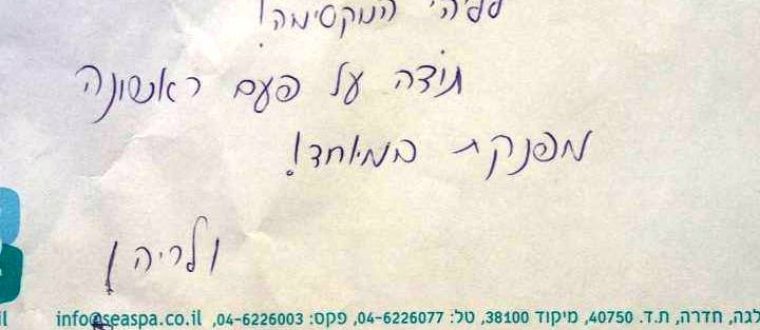 המקסימה!
תודה על פעם ראשונה
מפנקת במיוחד!
ולריה
לגה, חדרה, ת.ד. 40750, מיקוד 38100, טל: 04-6226077, פקס: 04-6226003, info@seaspa.co.il